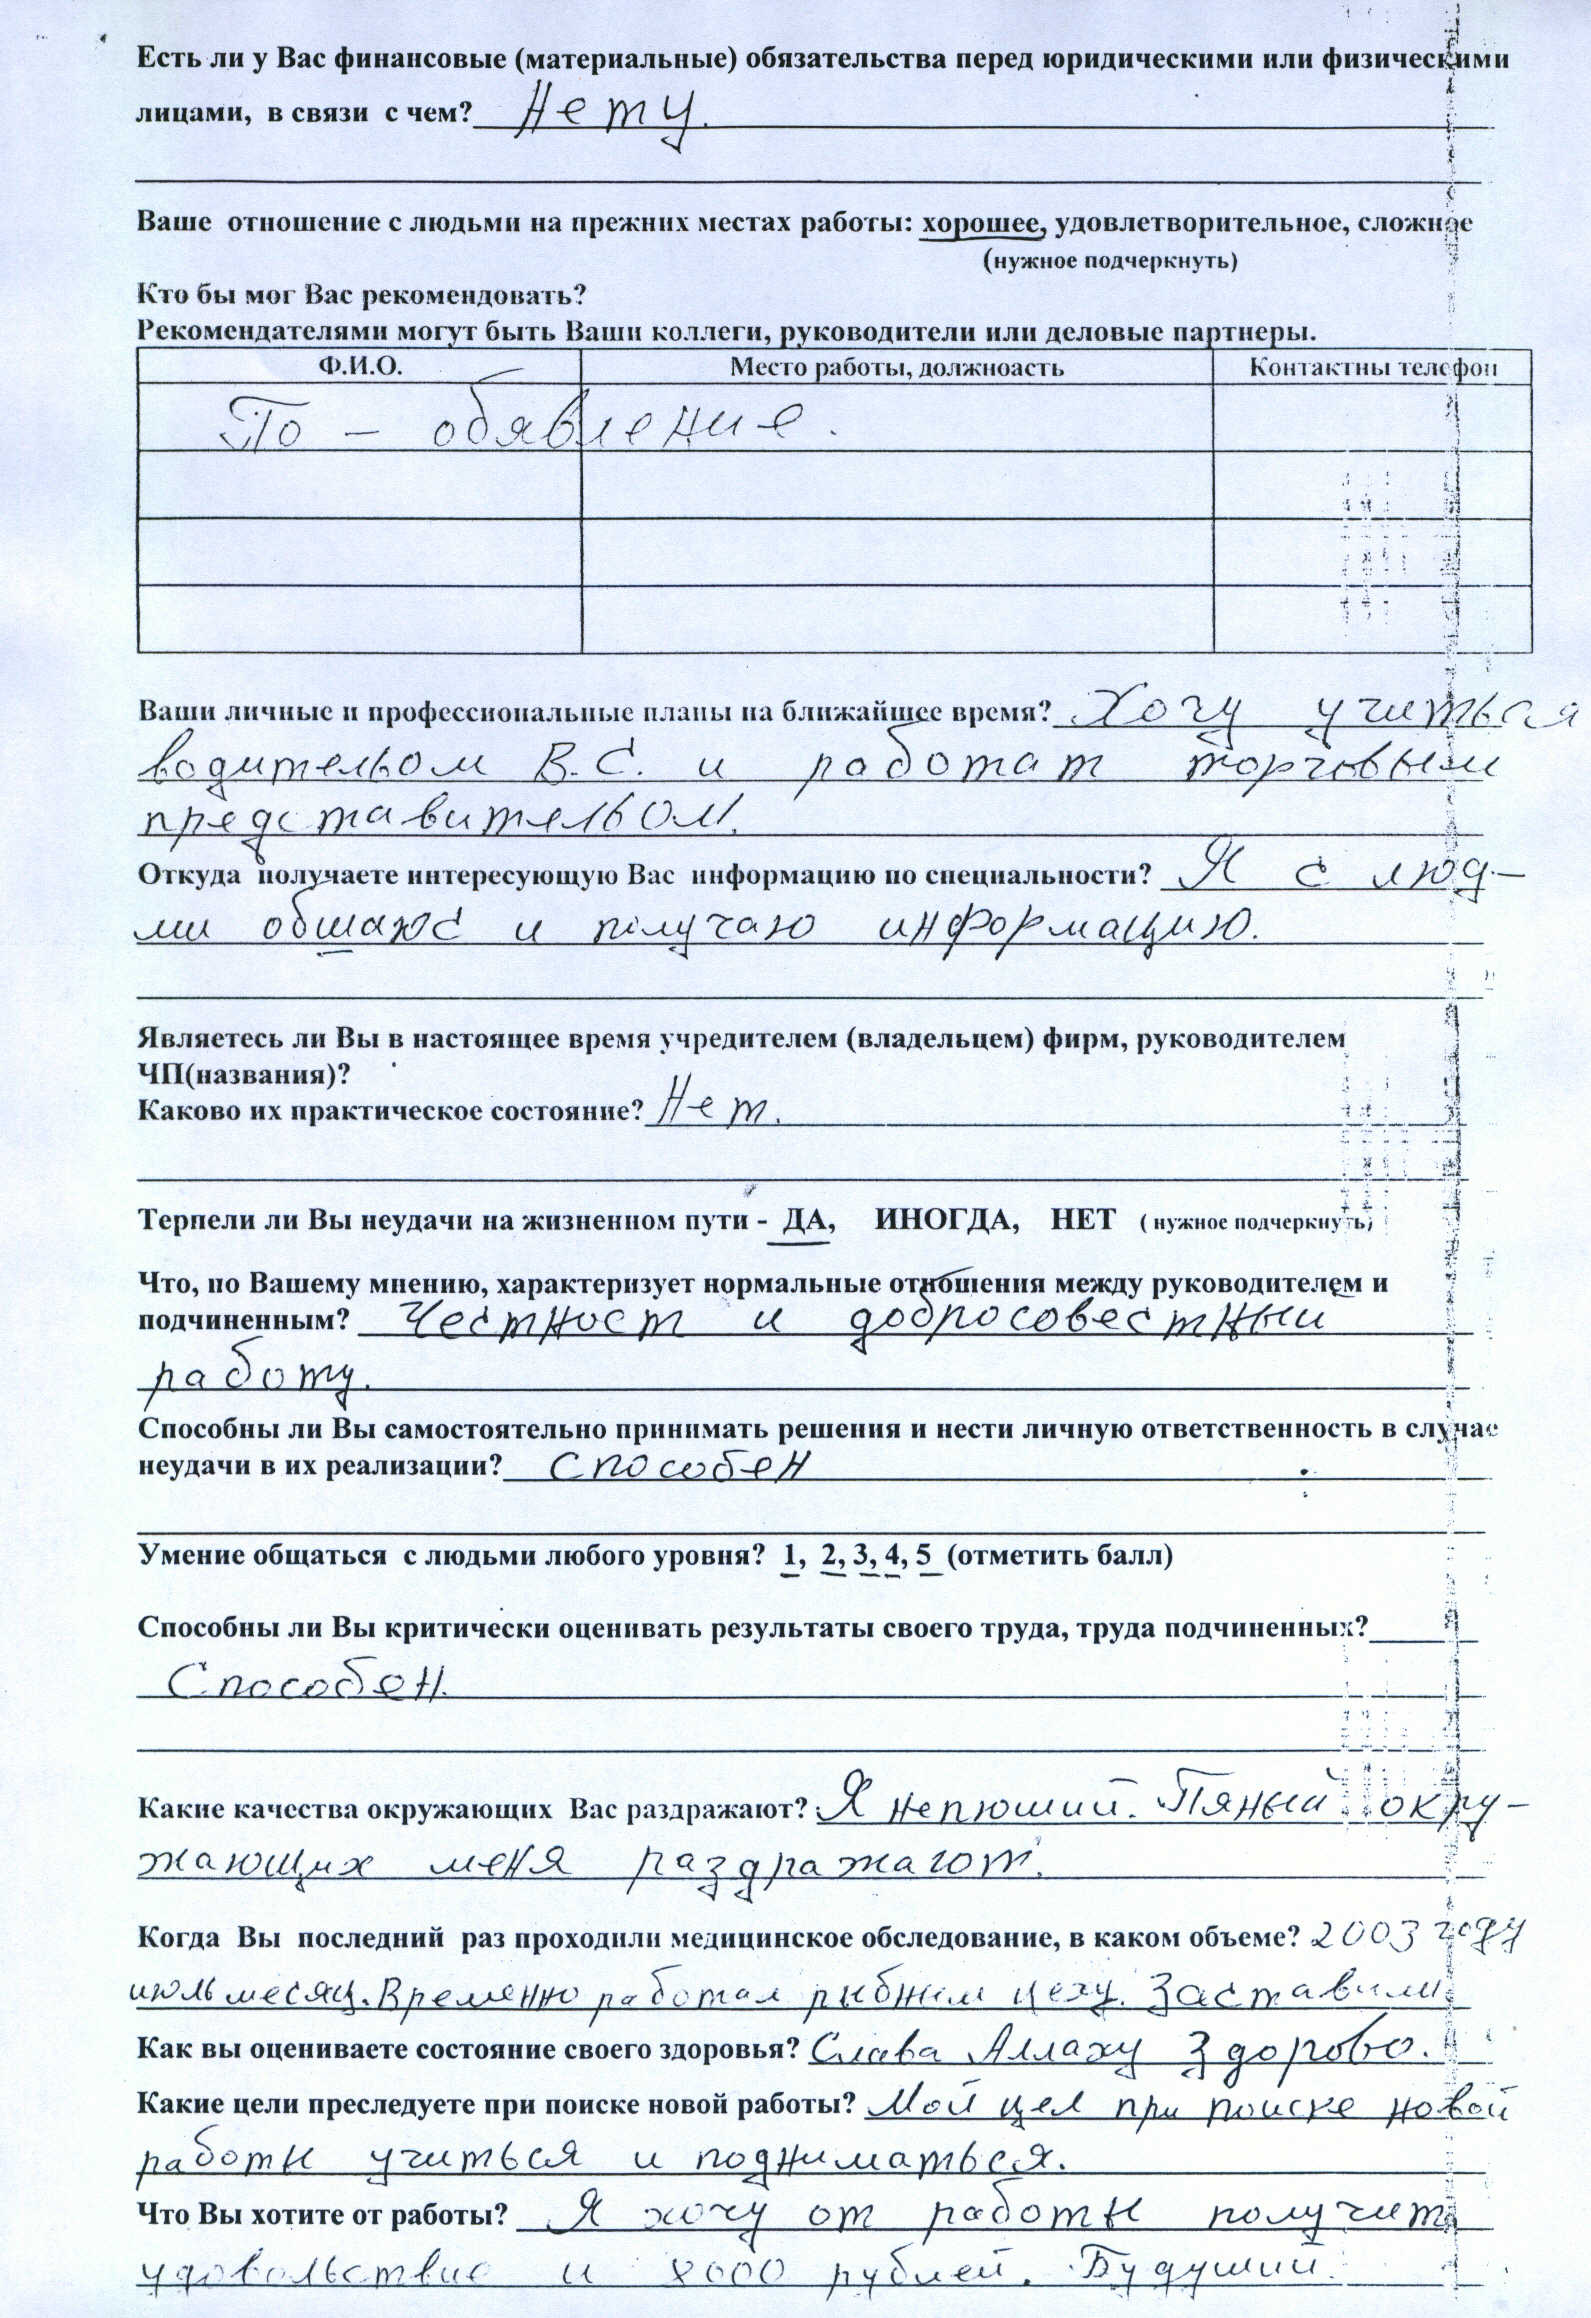 Есть ли у Вас финансовые (материальные) обязательства перед юридическими или физическими
лицами, в связи с чем? Нету.
Ваше отношение с людьми на прежних местах работы: хорошее, удовлетворительное, сложное
(нужное подчеркнуть)
Кто бы мог Вас рекомендовать?
Рекомендателями могут быть Ваши коллеги, руководители или деловые партнеры.
Ф.И.О. Место работы, должноасть Контактны телефон
По - обявление.
Ваши личные и профессиональные планы на ближайшее время? Хочу учиться
водительом В.С. и работат торговым
представительом.
Откуда получаете интересующую Вас информацию по специальности? Я с люд-
ми обшаюс и получаю информацию.
Являетесь ли Вы в настоящее время учредителем (владельцем) фирм, руководителем
ЧП(названия)?
Каково их практическое состояние? Нет.
Терпели ли Вы неудачи на жизненном пути - ДА, ИНОГДА, НЕТ ( нужное подчеркнуть)
Что, по Вашему мнению, характеризует нормальные отношения между руководителем и
подчиненным? Честност и добросовестный
работу.
Способны ли Вы самостоятельно принимать решения и нести личную ответственность в случае
неудачи в их реализации? способен
Умение общаться с людьми любого уровня? 1, 2, 3, 4, 5 (отметить балл)
Способны ли Вы критически оценивать результаты своего труда, труда подчиненных?
Способен.
Какие качества окружающих Вас раздражают? Я непюший. Пяный окру-
жающих меня раздражают.
Когда Вы последний раз проходили медицинское обследование, в каком объеме? 2003 году
июль месяц. Временно работал рыбным цеху. Заставили.
Как вы оцениваете состояние своего здоровья? Слава Аллаху Здорово.
Какие цели преследуете при поиске новой работы? Мой цел при поиске новой
работы учиться и подниматься.
Что Вы хотите от работы? Я хочу от работы получит
удовольствие и 8000 рублей. Будуший.